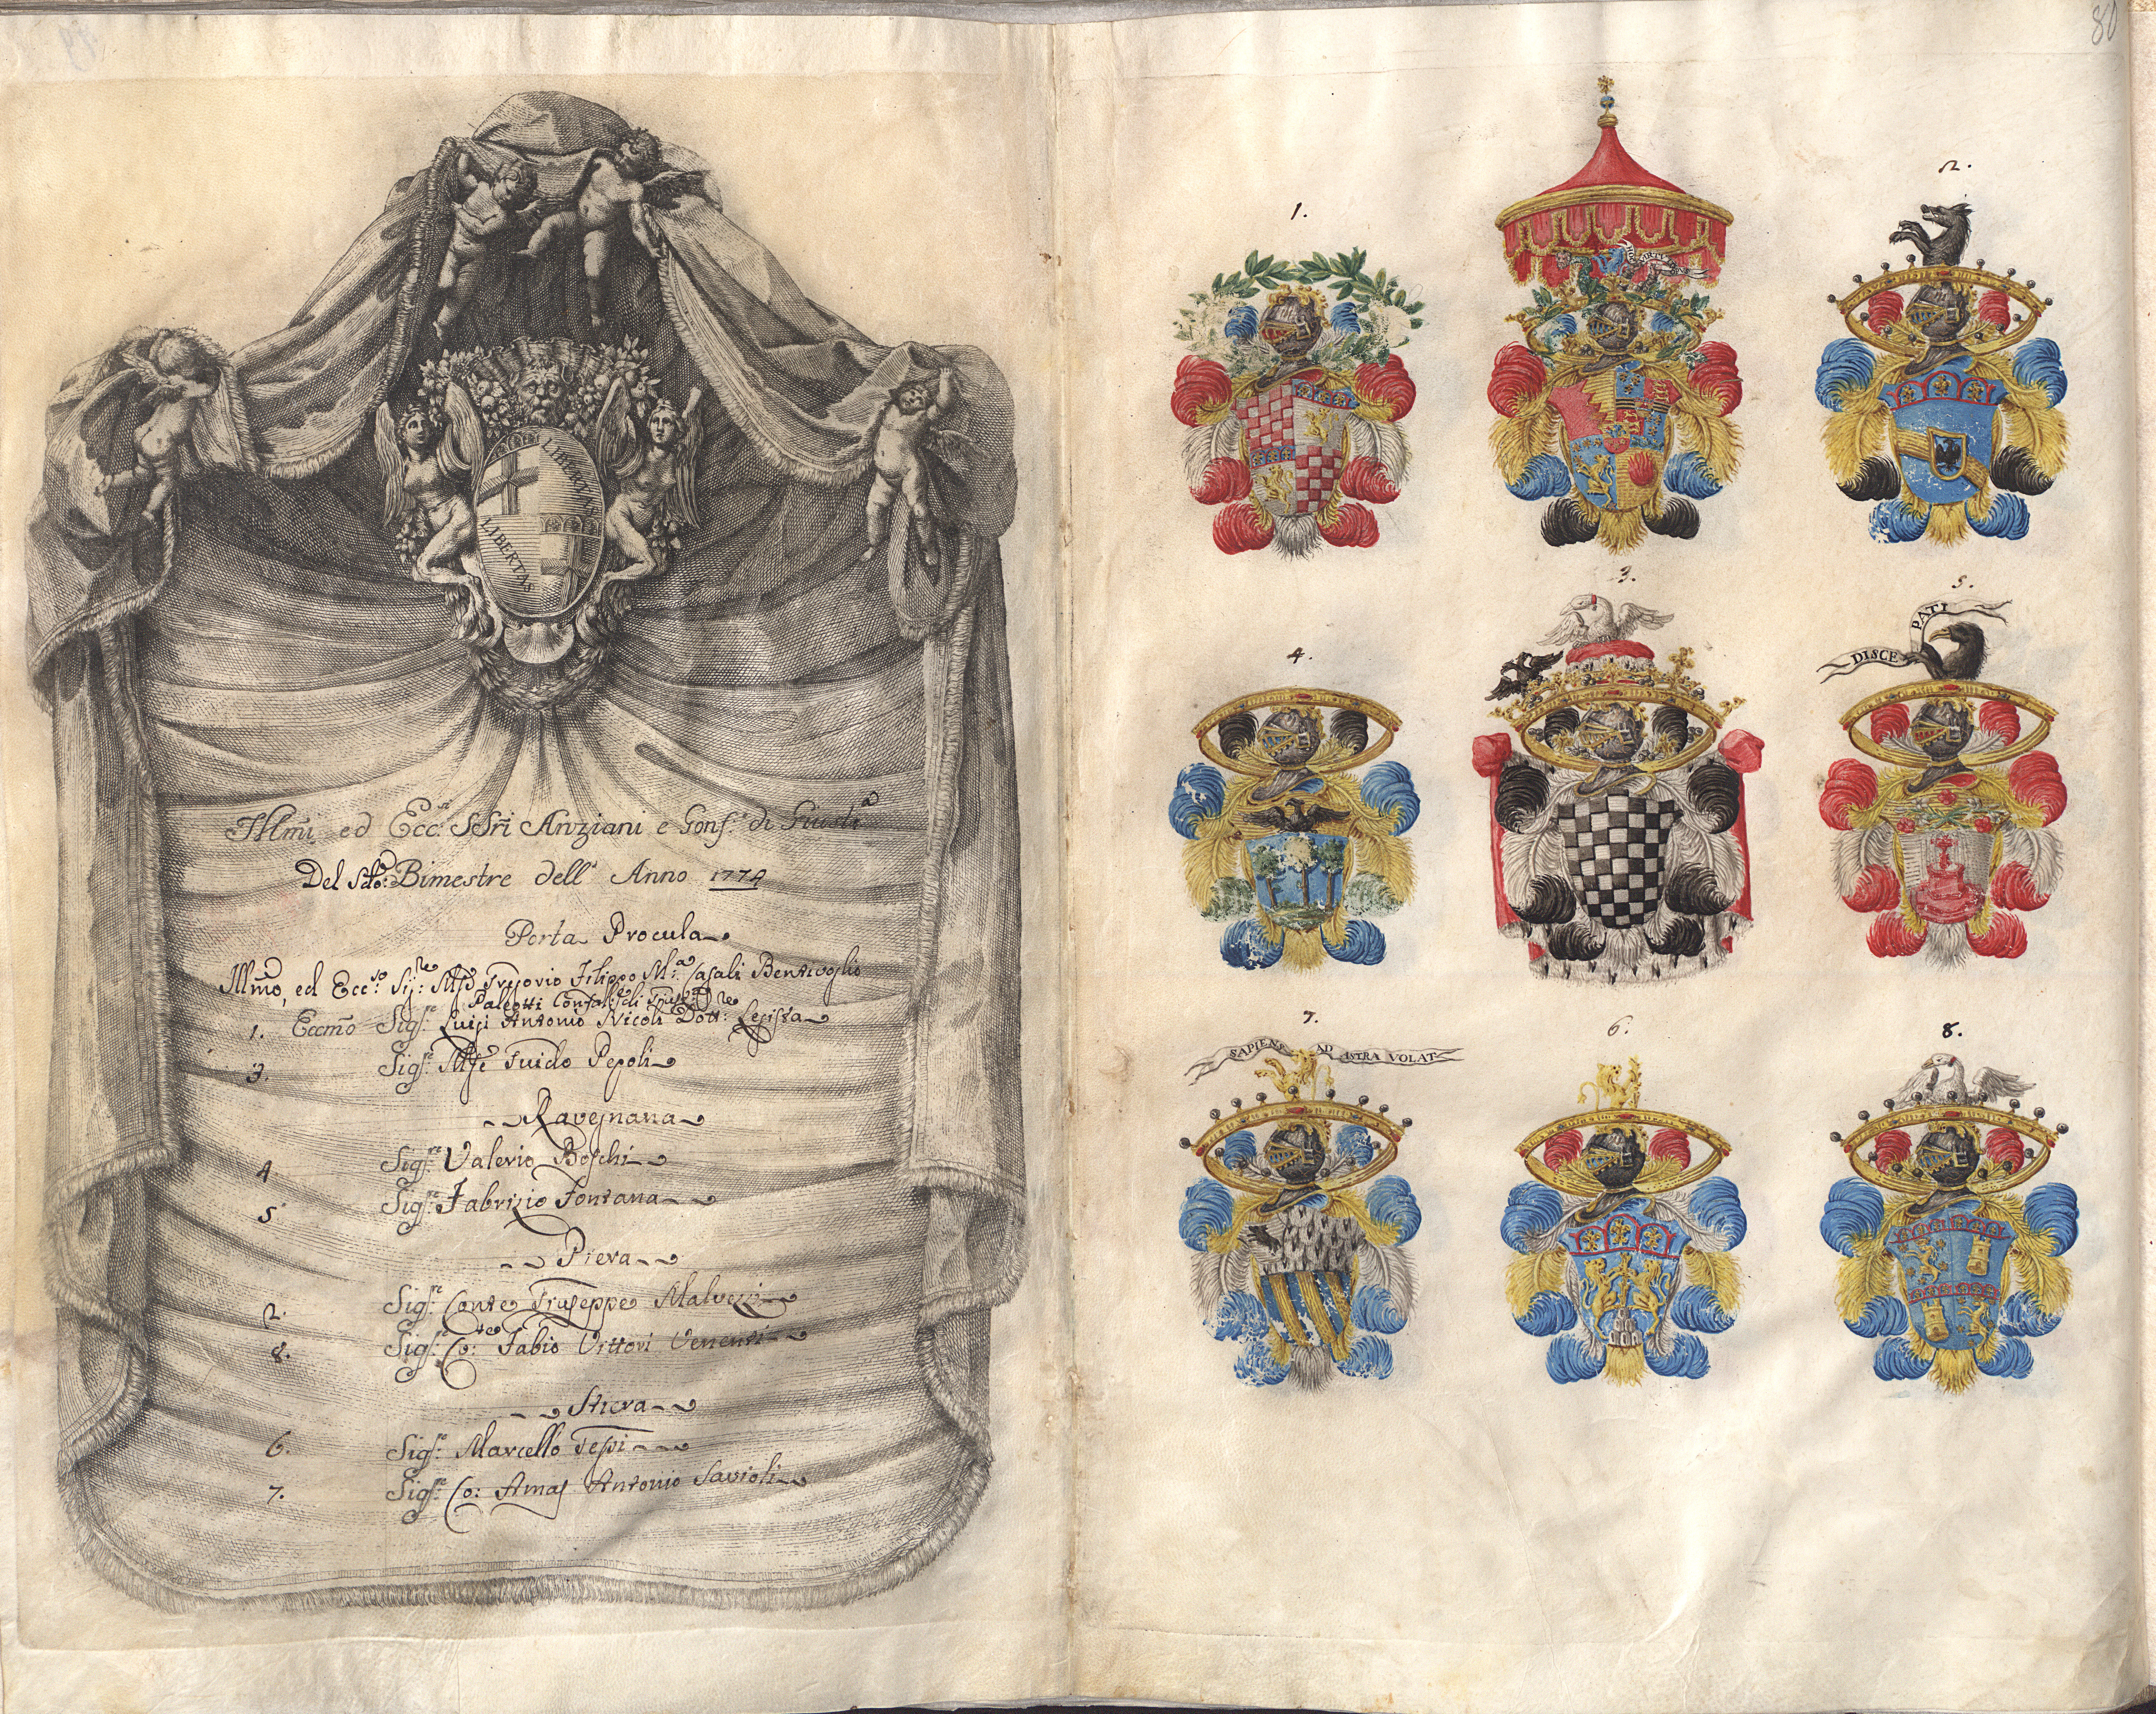 80
LIBERTAS
LIBERTAS
Illmi ed Ecc.si SSri Anziani e Gonf.e di Giusti.a
Del Sdo: Bimestre dell' Anno 1774
Porta Procula
Illmo, ed Ecc.so Sig.re Filippo M.a Casali Bentivoglio
Paleotti Gonfal.
1. Eccmo Sig.re Luigi Antonio Nicoli Dott.re Legista
3. Sig.re Mse Guido Pepoli
Ravegnana
4 Sig.re Valerio Boschi
5 Sig.re Fabrizio Fontana
Piera
2. Sig.re Conte Giuseppe Malvezzi
8. Sig.re Co:te Fabio Vittori Venenti
Stiera
6. Sig.re Marcello Tessi
7. Sig.re Co: Amas Antonio Savioli
1.
2.
3.
4.
5.
DISCE PATI
7.
6.
8.
SAPIENS AD ASTRA VOLAT